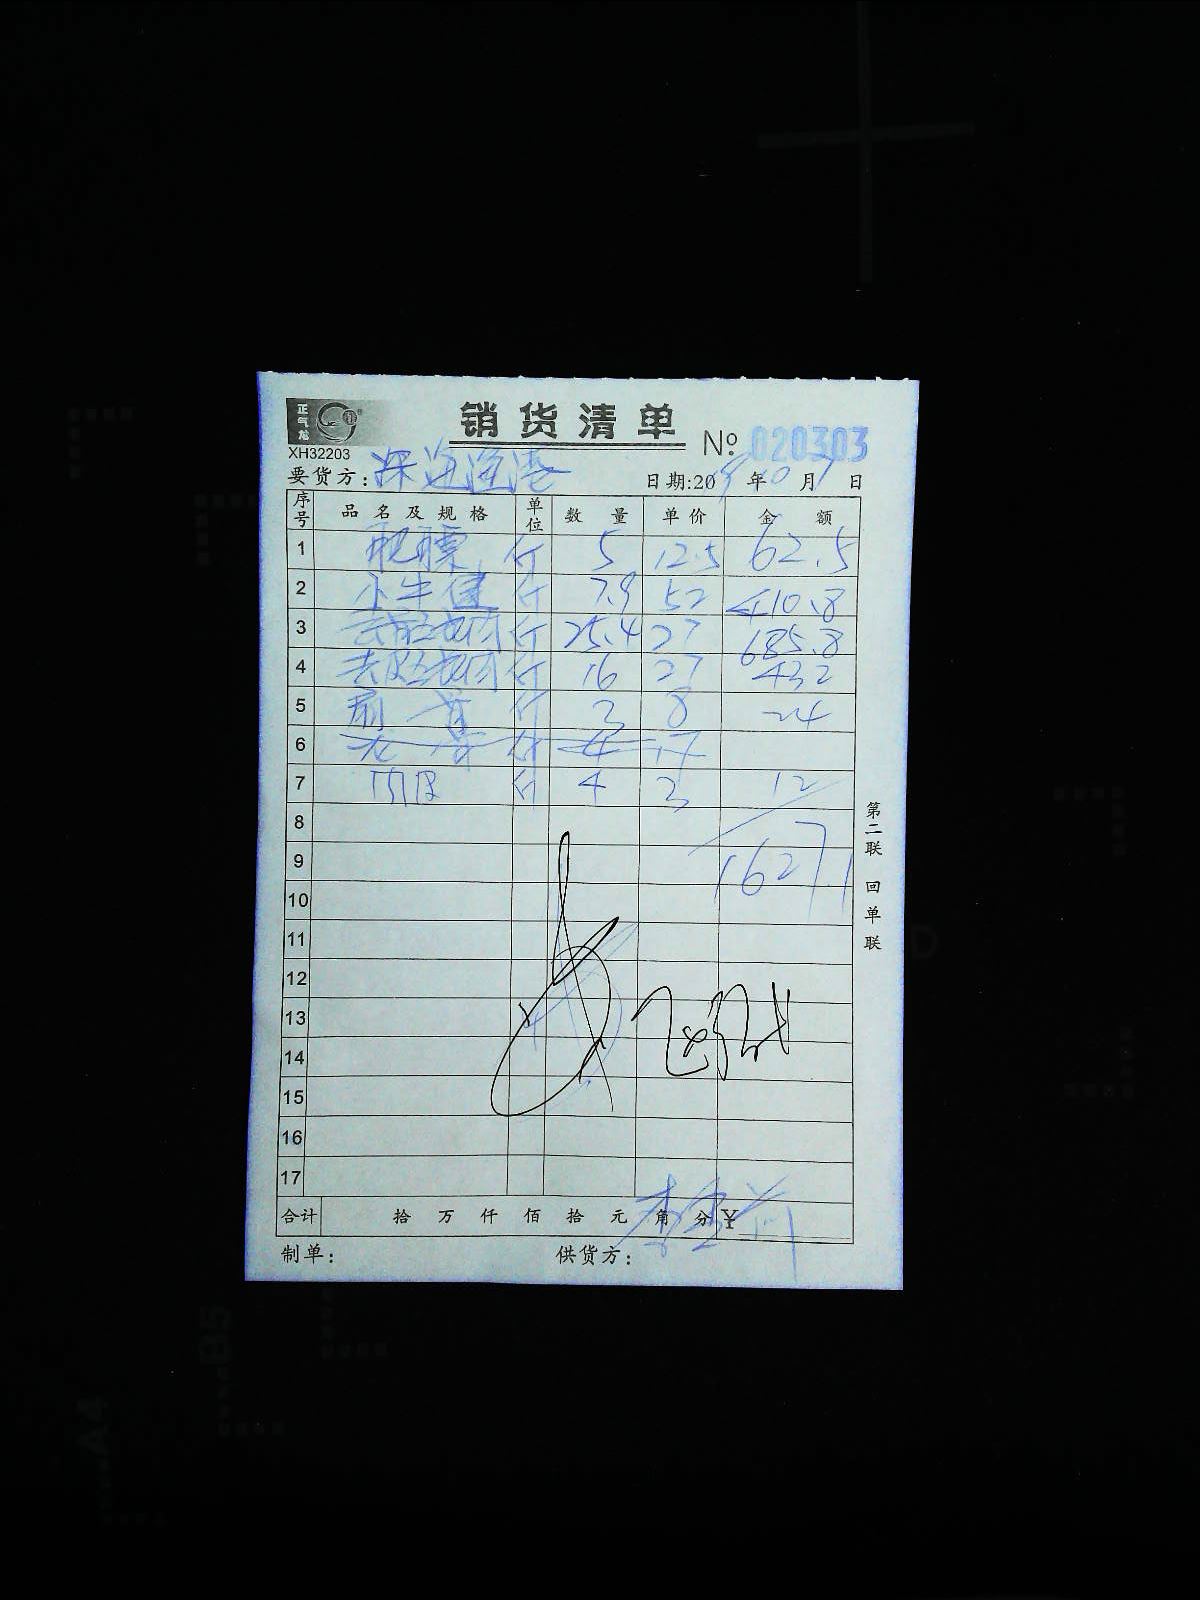 正气龙
销货清单
XH32203
№ 020303
要货方：深海渔港
日期:2019年10月1日
序号 品名及规格 单位 数量 单价 金额
1 肥膘 斤 5 12.5 62.5
2 小牛健 斤 7.9 52 410.8
3 斤 25.4 27 685.8
4 斤 16 27 432
5 斤 3 8 24
6 斤 4 17
7 肉皮 斤 4 3 12
8
1627.1
9
10
11
12
13
14
15
16
17
合计 拾万仟佰拾元角分¥
制单： 供货方：
第二联 回单联